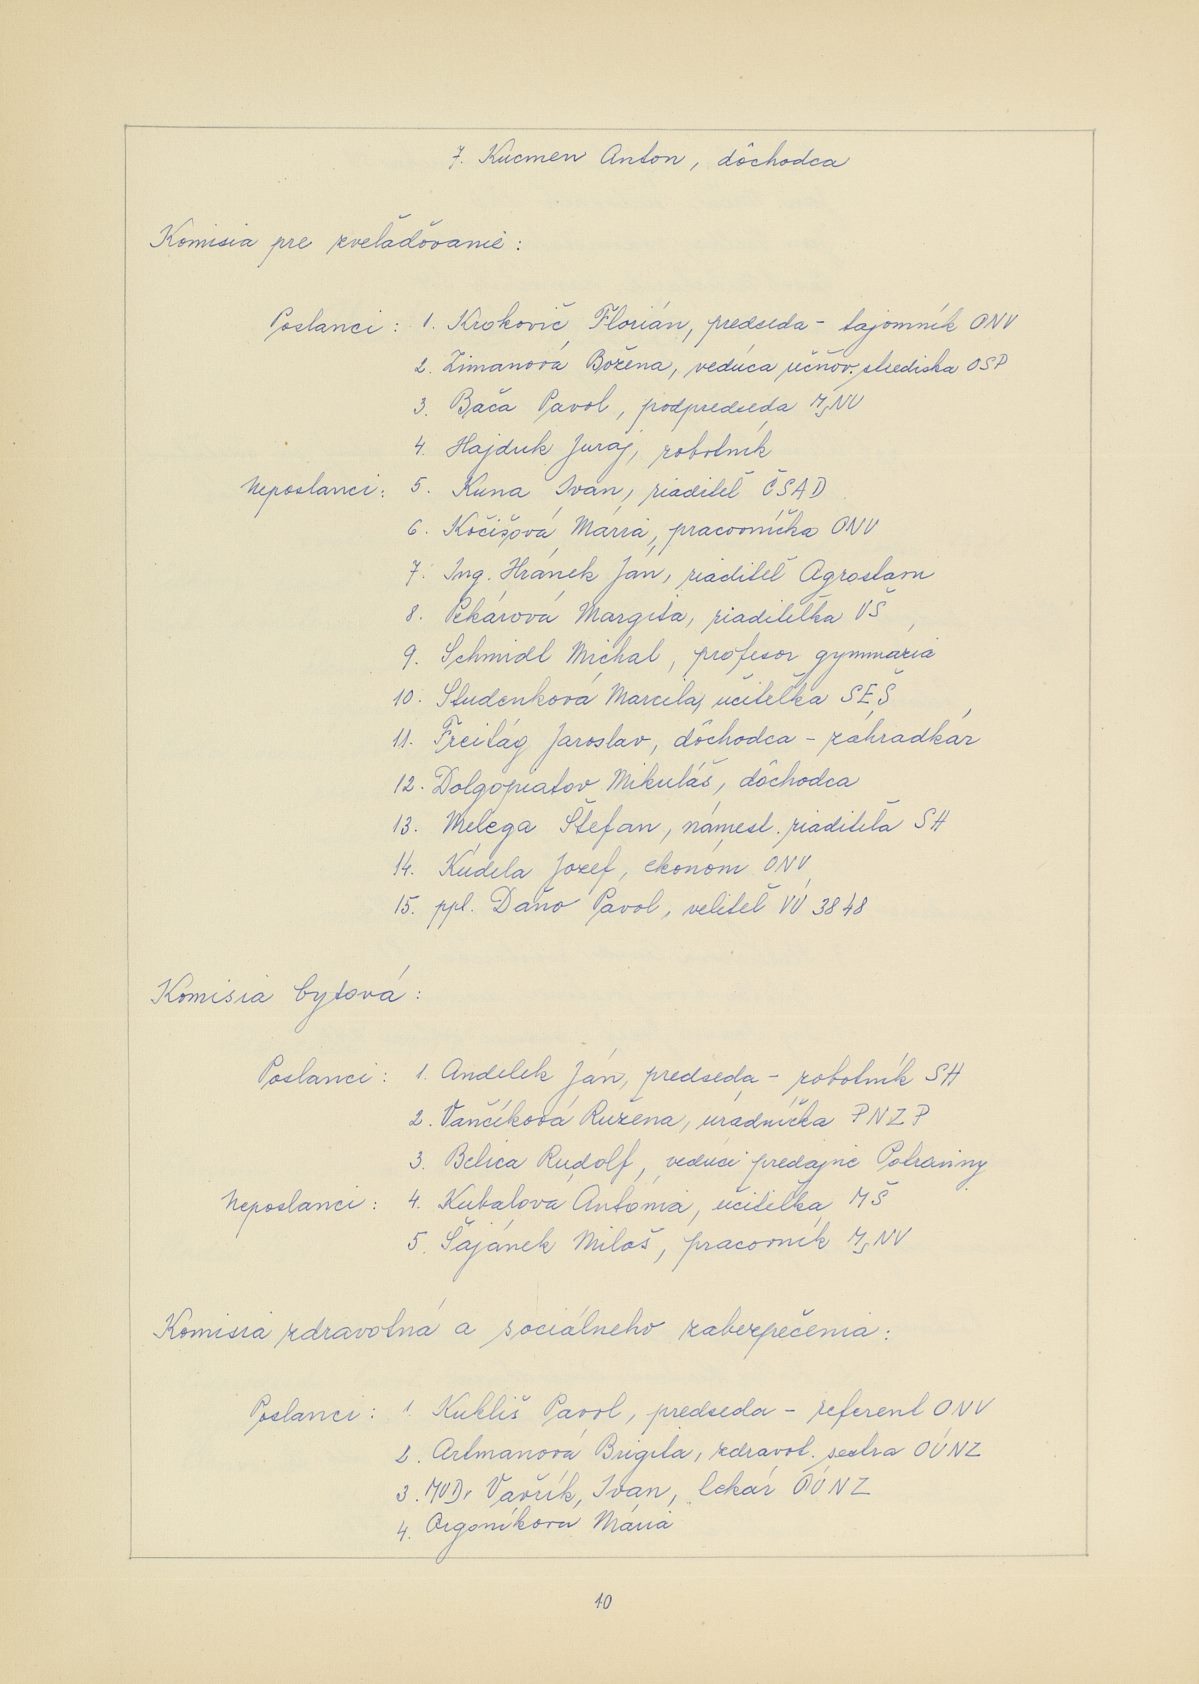 7. Kucmen Anton, dôchodca
Komisia pre zveľaďovanie:
Poslanci: 1. Krokovič Florián, predseda - tajomník ONV
2. Zimanová Božena, vedúca učňov. strediska OSP
3. Bača Pavol, podpredseda MsNV
4. Hajduk Juraj, robotník
Neposlanci: 5. Kuna Ivan, riaditeľ ČSAD
6. Kočišová Mária, pracovníčka ONV
7. Ing. Hránek Ján, riaditeľ Agrostavu
8. Pekárová Margita, riaditeľka VŠ
9. Schmidl Michal, profesor gymnázia
10. Studenková Marcela, učiteľka SEŠ
11. Freitág Jaroslav, dôchodca - záhradkár
12. Dolgopiatov Mikuláš, dôchodca
13. Melega Štefan, námest. riaditeľa SH
14. Kudela Jozef, ekonóm ONV
15. ppl. Daňo Pavol, veliteľ VÚ 3848
Komisia bytová:
Poslanci: 1. Andelek Ján, predseda - robotník SH
2. Vančíková Ružena, úradníčka PNZP
3. Belica Rudolf, vedúci predajne Potraviny
Neposlanci: 4. Kubalová Antónia, učiteľka MŠ
5. Šajánek Miloš, pracovník MsNV
Komisia zdravotná a sociálneho zabezpečenia:
Poslanci: 1 Kukliš Pavol, predseda - referent ONV
2. Artmanová Brigita, zdravot. sestra OÚNZ
3. MUDr Vavřík, Ivan, lekár OÚNZ
4. Orgoníková Mária
10